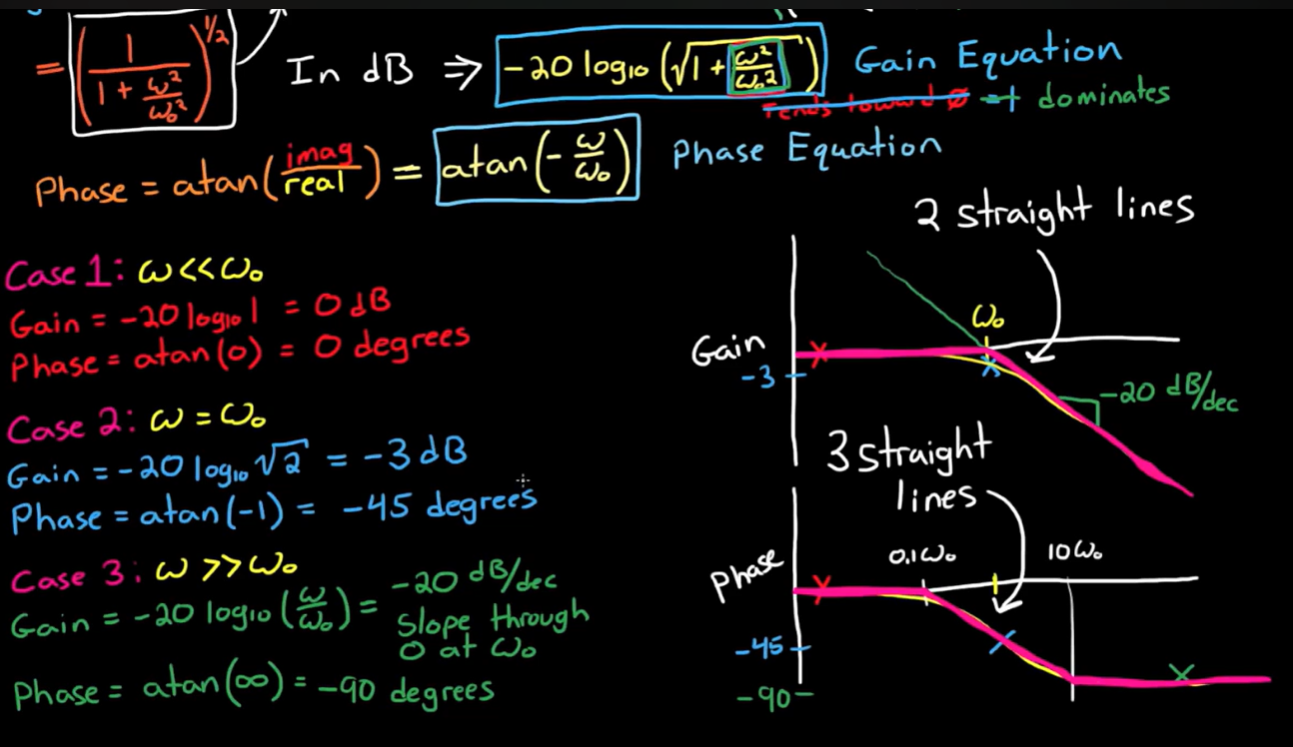 = (1 / (1 + ω²/ω₀²))^1/2
In dB ⇒ -20 log₁₀(√(1 + ω²/ω₀²)) Gain Equation
Tends toward 0 → dominates
Phase = atan(imag/real) = atan(-ω/ω₀) Phase Equation
2 straight lines
Case 1: ω << ω₀
Gain = -20 log₁₀ 1 = 0 dB
Phase = atan(0) = 0 degrees
Case 2: ω = ω₀
Gain = -20 log₁₀ √2 = -3 dB
Phase = atan(-1) = -45 degrees
Case 3: ω >> ω₀
Gain = -20 log₁₀(ω/ω₀) = -20 dB/dec
slope through
0 at ω₀
Phase = atan(∞) = -90 degrees
ω₀
Gain
-3
-20 dB/dec
3 straight
lines
0.1ω₀
10ω₀
Phase
-45
-90